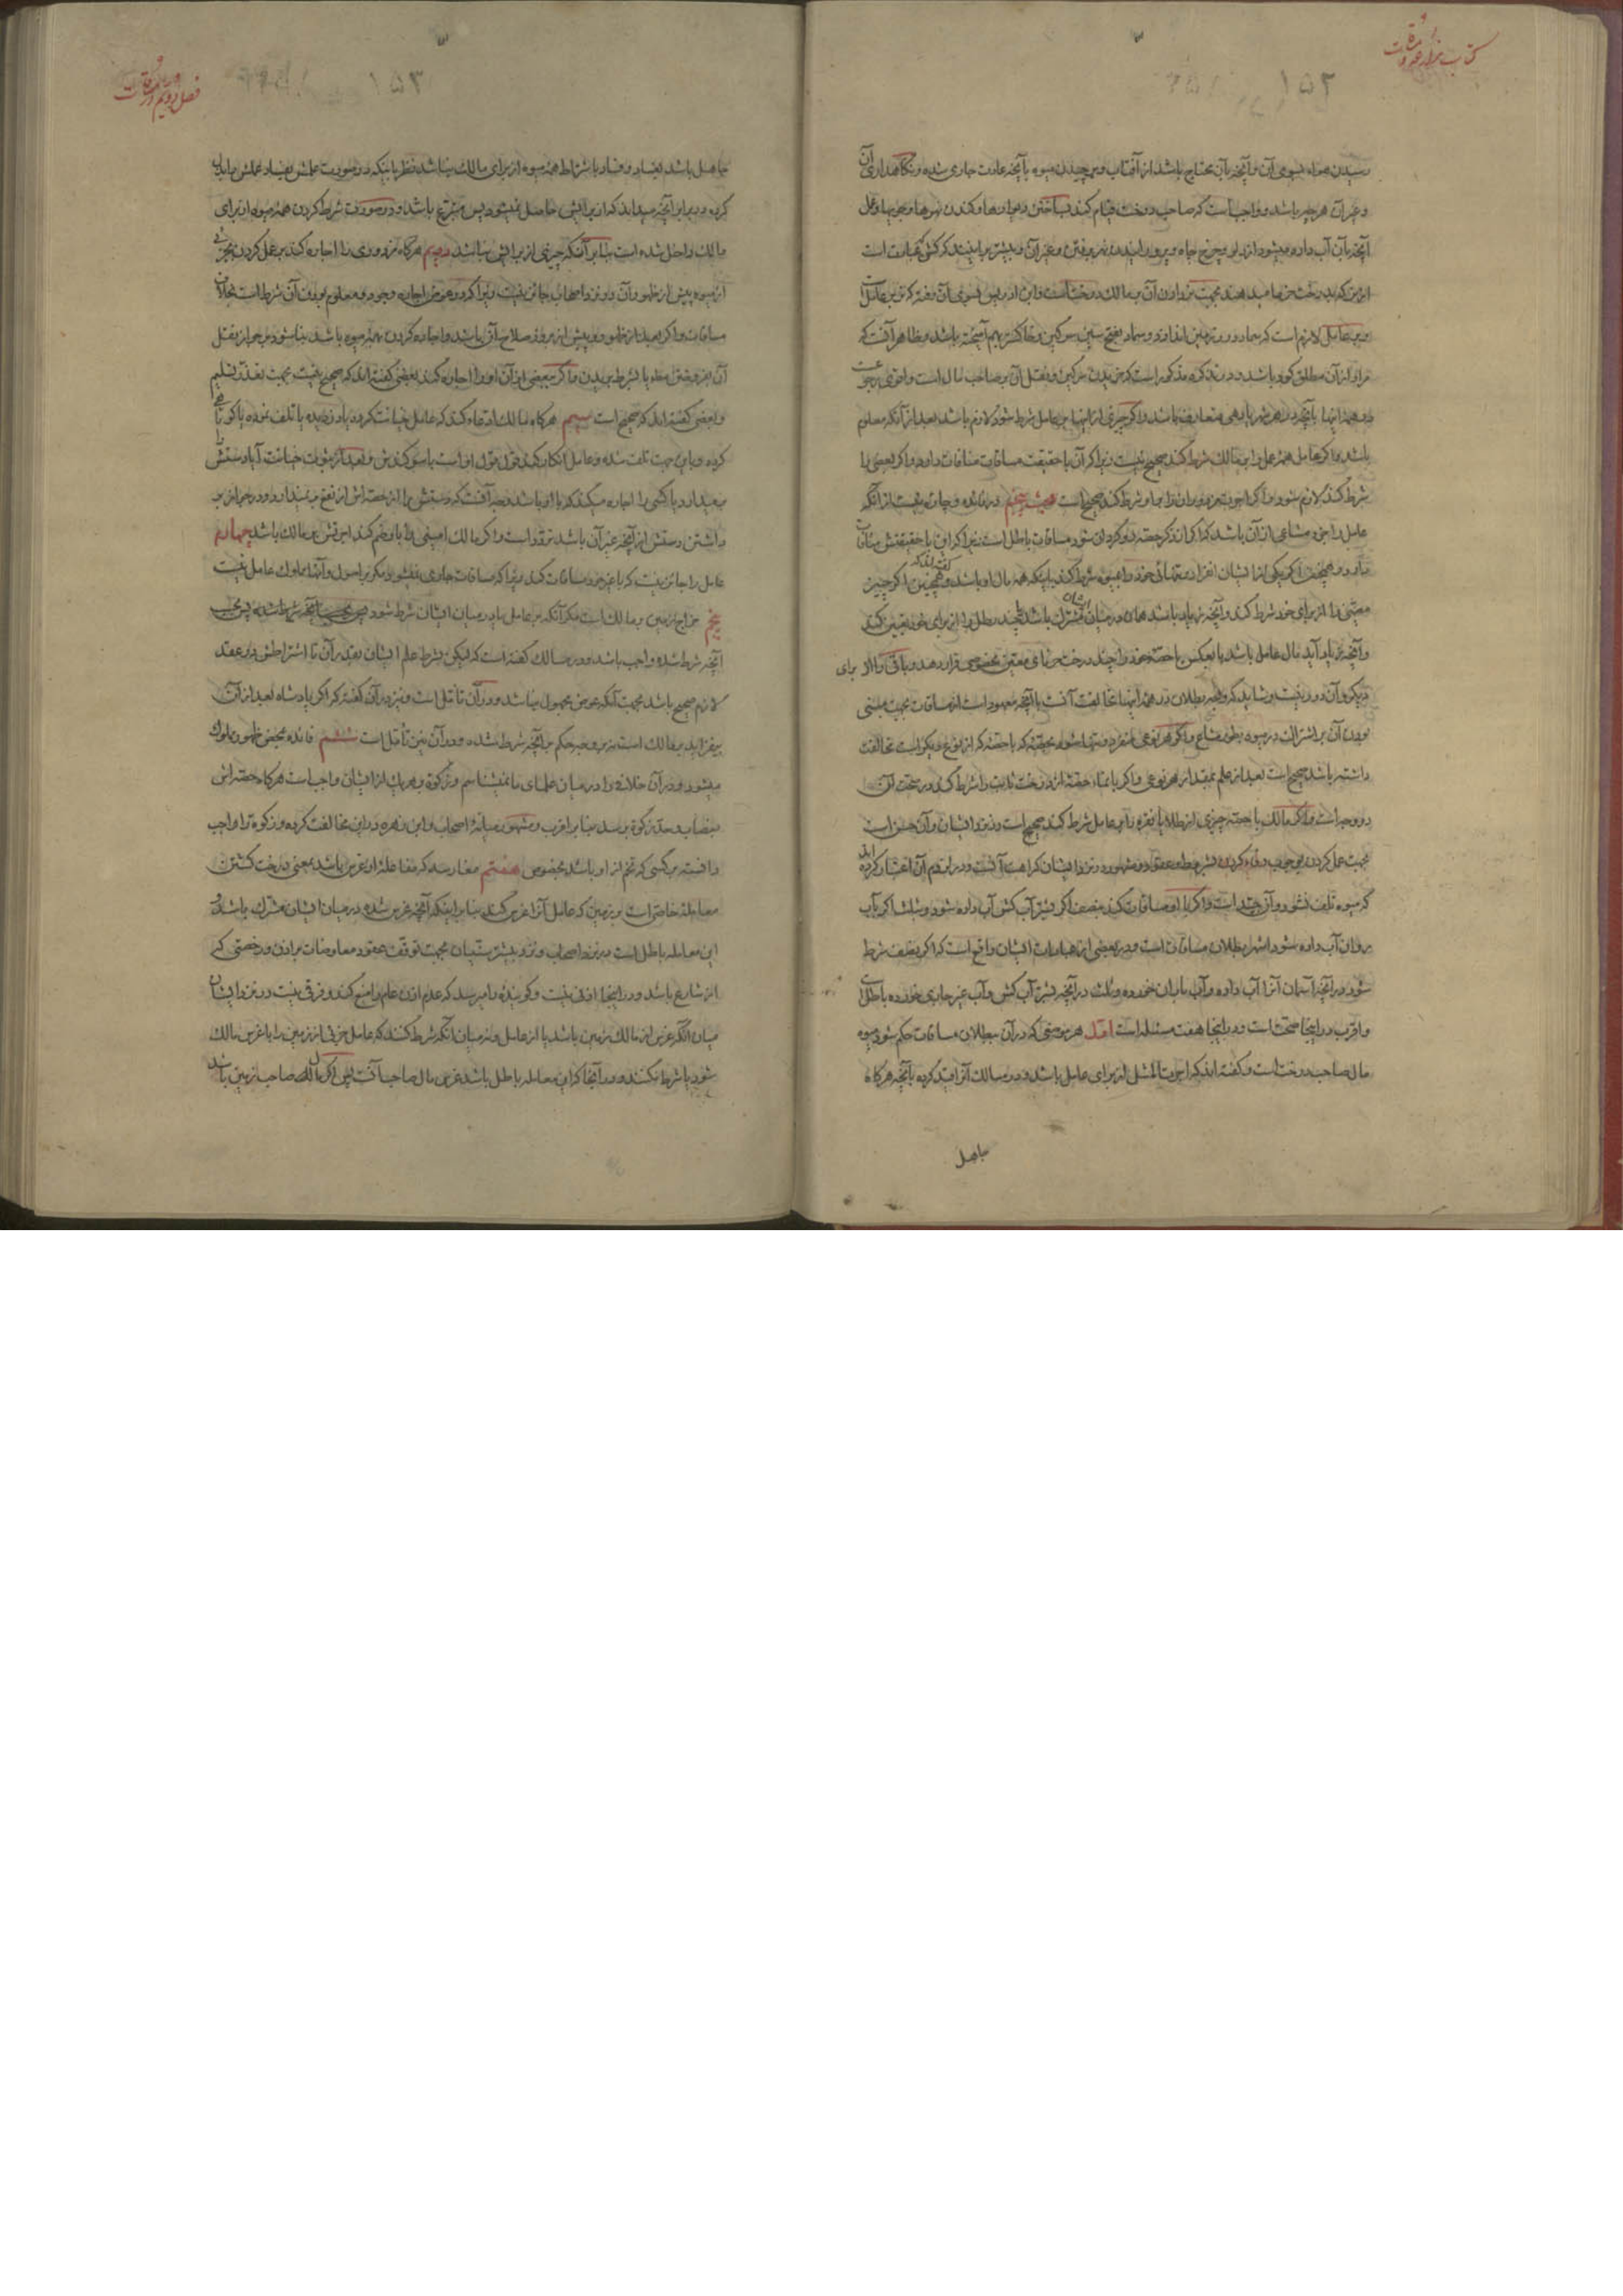 کتاب مزارعه و مساقات
۱۵۲
رسیدن هواء بسوی آن و آنچه بآن محتاج باشد از آفتاب و برچیدن میوه بآنچه عادت جاری شده و نگاهداری آن
و غیر آن هرچه باشد و واجبست که صاحب درخت قیام کند بساختن دیوارها و کندن نهرها و جویها و عمل
آنچه بآن آب داده میشود از دلو و چرخ چاه و بیشتر برانند که کش که عبارت است
از من که بدرخت خرما میدهند بجهت بردادن آن بر مالک درخت است
و بر عامل لازم است که سماد در زمین اندازد و سماد بفتح سین سرکین و خاکستر بهم آمیخته باشد و ظاهر آنست که
مراد از آن مطلق کود باشد و در تذکره مذکور است که خریدن سرکین و نقل آن بر صاحب مال است و اقوی رجوعست
در همه اینها بآنچه در هر شهر یا دهی متعارف باشد و اگر چیزی از اینها بر عامل شرط شود لازم باشد بعد از آنکه معلوم
باشد و اگر عامل همه عمل را بر مالک شرط کند صحیح نیست زیرا که آن با حقیقت مساقات منافات دارد و اگر بعضی را
شرط کند لازم شود و اگر اجرت مزدوران را بر او شرط کند صحیح است مبحث پنجم در فائده و چاره نیست از آنکه
عامل را جزء مشاعی از آن باشد که اگر از ذکر حصه دور کردان شود مساقات باطل است زیرا که این با حقیقتش منافات
دارد و همچنین اگر یکی از ایشان انفراد و تنهائی خود را بمیوه شرط کند باینکه همه مال او باشد و همچنین اگر چیز
معینی را از برای خود شرط کند و آنچه زیاد باشد همان در میان ایشان مشترک باشد یا چند رطل را از برای خود تعیین کند
و آنچه زیاد آید مال عامل باشد یا بعکس یا حصه خود را چند درخت خرمای معین مخصوص قرار دهد و باقی را از برای
دیگری و آن دور نیست و شاید که وجه بطلان در همه اینها مخالفت آنست با آنچه معهود است از مساقات بجهت مبتنی
بودن آن بر اشتراک در میوه بطور مشاع و اگر هر نوعی منفرد و تنها شود بحصه که با حصه که از نوع دیگر است مخالفت
داشته باشد صحیح است بعد از علم بمقدار هر نوعی و اگر با نماء حصه از درخت ثابت را شرط کند در صحت آن
دو وجه است و اگر مالک با حصه چیزی از طلا یا نقره را بر عامل شرط کند صحیح است و نزد ایشان و آن حسن است
بجهت عمل کردن بوجوب وفاء کردن بشرط و عقود و مشهور در نزد ایشان کراهت آنست و در لزوم آن اعتبار کرده اند
که میوه تلف نشود و آن جید است و اگر با او مساقات کند بنصف اگر بشتر آب کش آب داده شود و بثلث اگر بآب
روان آب داده شود اشهر بطلان مساقات است و در بعضی از عبارات ایشان واقع است که اگر بنصف شرط
شود در آنچه آسمان آنرا آب داده و آب باران خورده و ثلث در آنچه بشتر آب کش و آب غیر جاری خورده باطل است
و اقرب در اینجا صحت است و در اینجا هفت مسئله است اول هر موضعی که در آن ببطلان مساقات حکم شود میوه
مال صاحب درخت است و گفته اند که اجرت المثل از برای عامل باشد و در مسالک آنرا مقید کرده بآنچه هرگاه
جاهل
فصل دویم در مساقات
۱۵۳
جاهل باشد بفساد و فساد باشتراط همه میوه از برای مالک نباشد نظر باینکه در صورت علمش بفساد عملش را بذل
کرده و در برابر آنچه میداند که از برایش حاصل نمیشود پس متبرع باشد و در صورت شرط کردن همه میوه از برای
مالک داخل شده است بنا بر آنکه چیزی از برایش نباشد دویم هرگاه مزدوری را اجاره کند بر عمل کردن بجزئی
از میوه پیش از ظهور آن در نزد اصحاب جائز نیست زیرا که در عوض اجاره وجود و معلوم بودن آن شرط است بخلاف
مساقات و اگر بعد از ظهور و پیش از بروز صلاح آن باشد و اجاره کردن بهمه میوه باشد بنا شود بر جواز نقل
آن بفروختن مطلقا یا بشرط بریدن و اگر ببعضی از آن او را اجاره کند بعضی گفته اند که صحیح نیست بجهت تعذر تسلیم
و بعضی گفته اند که صحیح است سیم هرگاه مالک ادعاء کند که عامل خیانت کرده یا دزدیده یا تلف نموده یا کوتاهی
کرده و باین جهت تلف شده و عامل انکار کند قول قول او است با سوگندش و بعد از ثبوت خیانت آیا دستش را
بر میدارد یا کسی را اجاره میکند که با او باشد وجه آنست که دستش را از حصه اش از نفع بر نمیدارد و در جواز بر
داشتن دستش از آنچه غیر آن باشد تردد است و اگر مالک امینی را باو ضم کند اجرتش بر مالک باشد چهارم
عامل را جائز نیست که با غیر خود مساقات کند زیرا که مساقات جاری نمیشود مگر بر اصول و آنها مملوک عامل نیست
پنجم خراج زمین بر مالک است مگر آنکه بر عامل یا در میان ایشان شرط شود پس بحسب
آنچه شرط شده واجب باشد و در مسالک گفته است که لیکن بشرط علم ایشان بقدر آن تا اشتراطش در عقد
لازم صحیح باشد بجهت آنکه عوض مجهول نباشد و در آن تأمل است و نیز در آن گفته که اگر پادشاه بعد از آن
بیفزاید بر مالک است نه بر وجه حکم بر آنچه شرط شده و در آن نیز تأمل است ششم فائده بمحض ظهور مملوک
میشود و در آن خلافی را در میان علمای ما نمیشناسم و زکوة بر هر یک از ایشان واجب است هرگاه حصه اش
بنصاب و حد زکوة برسد بنا بر اقرب و مشهور میانه اصحاب و ابن زهره در این مخالفت کرده و زکوة را واجب
دانسته بر کسی که تخم از او باشد بخصوص هفتم مغارسه که مفاعله از غرس باشد بمعنی درخت کشتن
معامله خاصی است بر زمین که عامل آنرا غرس کند بنا بر اینکه آنچه غرس شده در میان ایشان مشترک باشد و
این معامله باطل است در نزد اصحاب و نزد بیشتر سنیان بجهت توقف عقود معاوضات بر اذن و رخصتی که
از شارع باشد و در اینجا اذنی نیست و گوینده را میرسد که عدم اذن عام را منع کند و فرقی نیست در نزد ایشان
میان آنکه غرس از مالک زمین باشد یا از عامل و نه میان آنکه شرط کنند که عامل جزئی از زمین را با غرس مالک
شود یا شرط نکنند و در آنجا که این معامله باطل باشد غرس مال صاحب آنست پس اگر مال صاحب زمین باشد